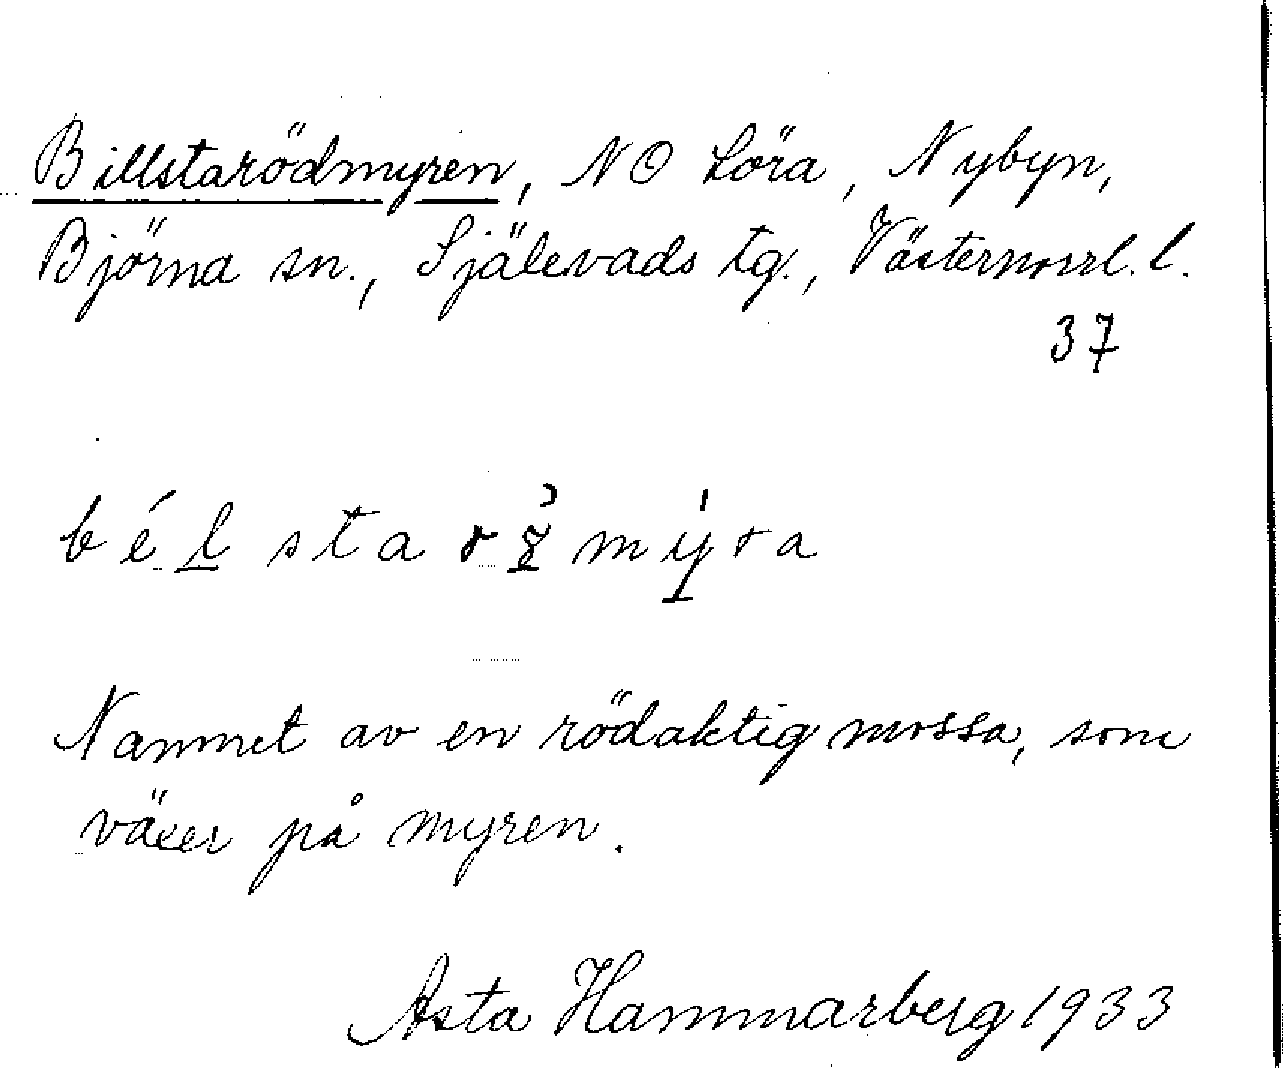 Billstarödmyren, NO Löra, Nybyn,
Björna sn., Själevads tg., Västernorrl. l.
37
Namnet av en rödaktig mossa, som
växer på myren.
Asta Hammarberg 1933